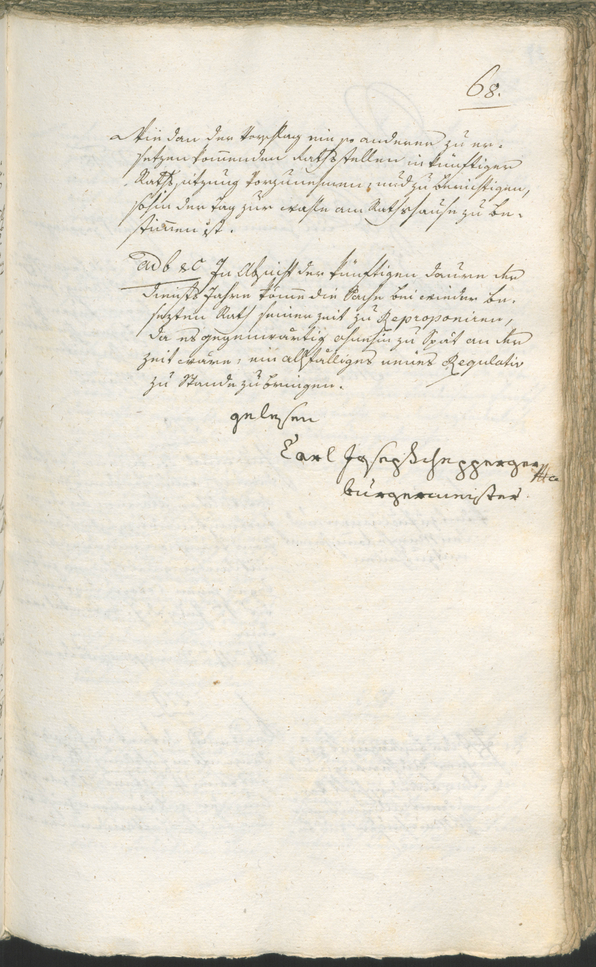 68.
Wie dan der Vorschlag ein so anderen zu er-
setzen kommenden Rathsstellen in künftiger
Rathssitzung vorzunehmen, und zu berichtigen,
sohin der Tag zur wahle am Rathshause zu be-
stimmen ist.
ad b &C In Absicht der künftigen dauer der
Diensts Jahre komme die Sache bei wieder be-
setzten Rath seiner zeit zu Reproponiren,
da es gegenwärtig ohnehin zu spät an der
zeit wäre, ein allfälliges neues Regulativ
zu Stande zu bringen.
gelesen
Carl Joseph Schepperger
burgermeister